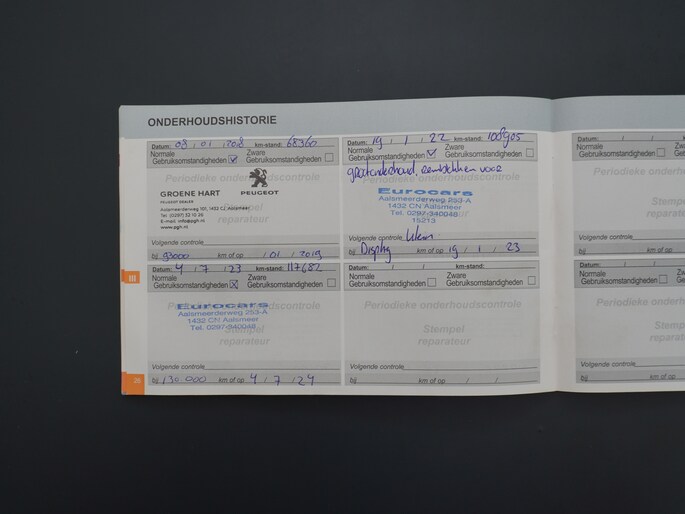 ONDERHOUDSHISTORIE
Datum: 08 / 01 / 2018 km-stand: 68360
Normale Gebruiksomstandigheden
Zware Gebruiksomstandigheden
Periodieke onderhoudscontrole
GROENE HART
PEUGEOT DEALER
PEUGEOT
Aalsmeerderweg 101, 1432 CJ Aalsmeer
Tel. (0297) 32 10 26
E-mail: info@pgh.nl
www.pgh.nl
Stempel
reparateur
Volgende controle
bij 93000 km of op / 01 / 2019
Datum: 19 / 1 / 22 km-stand: 108905
Normale Gebruiksomstandigheden
Zware Gebruiksomstandigheden
Periodieke onderhoudscontrole
grootonderhoud, remblokken voor
Eurocars
Aalsmeerderweg 253-A
1432 CN Aalsmeer
Tel. 0297-340048
15213
reparateur
Volgende controle
bij Display km of op 19 / 1 / 23
Datum: 4 / 7 / 23 km-stand: 117682
Normale Gebruiksomstandigheden
Zware Gebruiksomstandigheden
Periodieke onderhoudscontrole
Eurocars
Aalsmeerderweg 253-A
1432 CN Aalsmeer
Tel. 0297-340048
Stempel
reparateur
Volgende controle
bij 130 000 km of op 4 / 7 / 24
Datum: / / km-stand:
Normale Gebruiksomstandigheden
Zware Gebruiksomstandigheden
Periodieke onderhoudscontrole
Stempel
reparateur
Volgende controle
bij km of op / /
Datum: / /
Normale
Gebruiksomstandigheden
Periodieke onderh
Stem
repara
Volgende controle
bij km of
Datum: / /
Normale
Gebruiksomstandigheden
Periodieke onderh
Stem
repara
Volgende controle
bij km of op
III
26